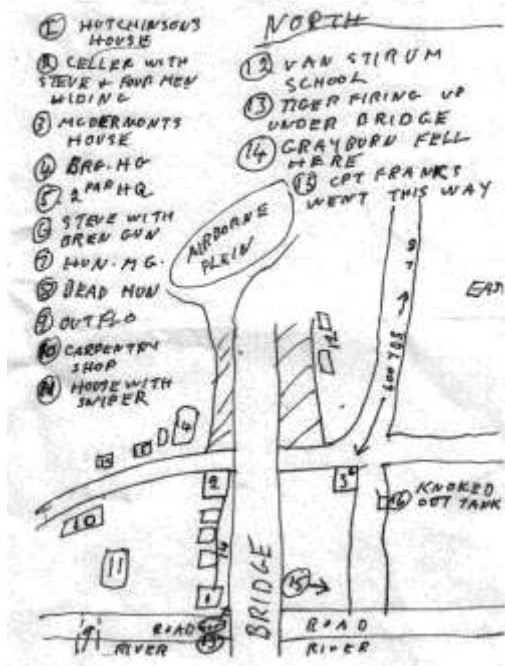 ① HUTCHINSONS
HOUSE
② CELLER WITH
STEVE + FOUR MEN
HIDING
③ MCDERMONTS
HOUSE
④ BRG. HQ
⑤ 2 PAR HQ
⑥ STEVE WITH
BREN GUN
⑦ HUN. M.G.
⑧ DEAD HUN
⑨ OUTFLO
⑩ CARPENTRY
SHOP
⑪ HOUSE WITH
SNIPER
NORTH
⑫ VAN STIRUM
SCHOOL
⑬ TIGER FIRING UP
UNDER BRIDGE
⑭ GRAYBURN FELL
HERE
⑮ CPT FRANKS
WENT THIS WAY
AIRBORNE
PLEIN
EAS
8
7
600 YDS
12
4
2
3
⑯ KNOKED
OUT TANK
10
11
14
1
⑮
BRIDGE
9
ROAD
RIVER
⑬
ROAD
RIVER